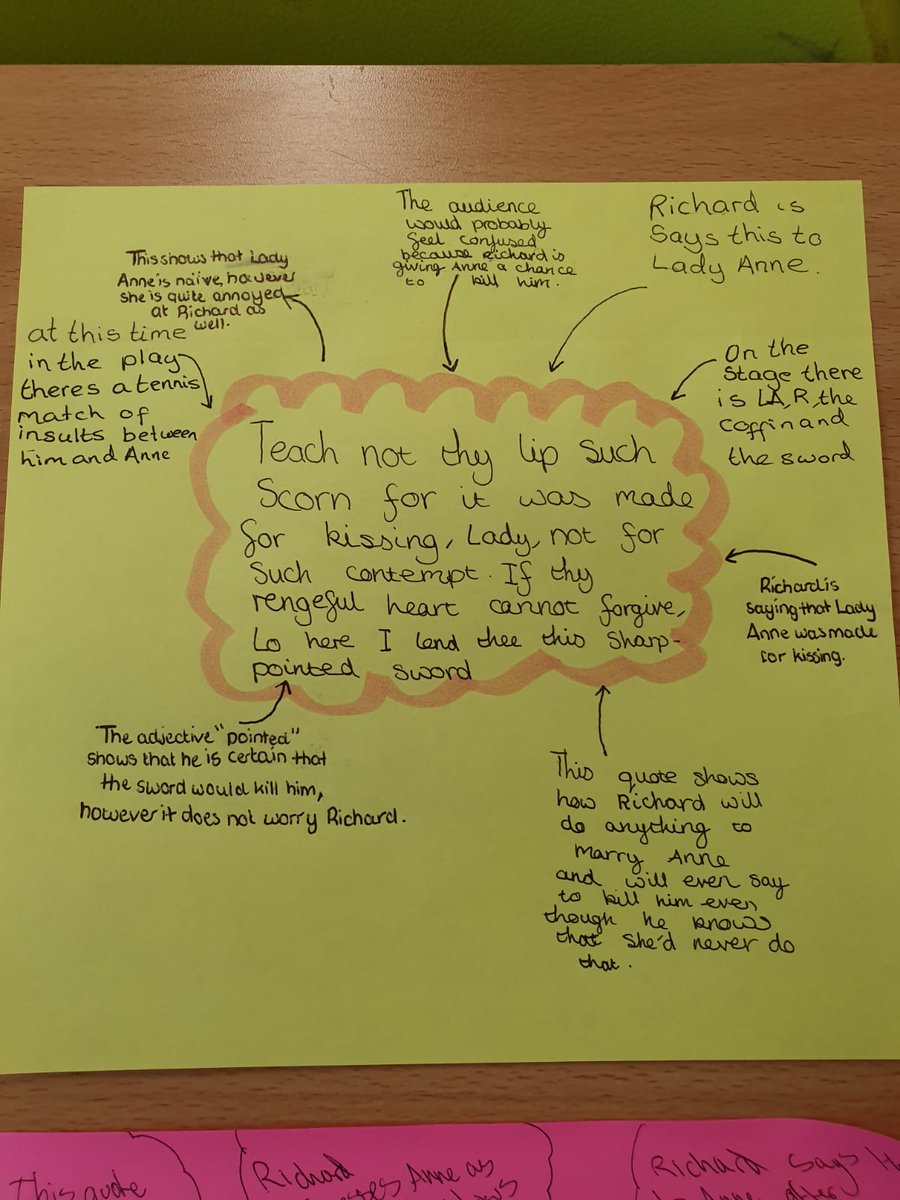 This shows that Lady
Anne is naïve, however
she is quite annoyed
at Richard as
well.
The audience
would probably
feel confused
because Richard is
giving Anne a chance
to kill him.
Richard is
Says this to
Lady Anne.
at this time
in the play
theres a tennis
match of
insults between
him and Anne
On the
Stage there
is LA, R, the
coffin and
the sword
Teach not thy lip such
Scorn for it was made
for kissing, Lady, not for
such contempt. If thy
rengeful heart cannot forgive,
Lo here I lend thee this sharp-
pointed sword
Richard is
saying that Lady
Anne was made
for kissing.
The adjective "pointed"
shows that he is certain that
the sword would kill him,
however it does not worry Richard.
This quote shows
how Richard will
do anything to
marry Anne
and will even say
to kill him even
though he knows
that she'd never do
that.
This quote
Richard
Anne as
Richard says